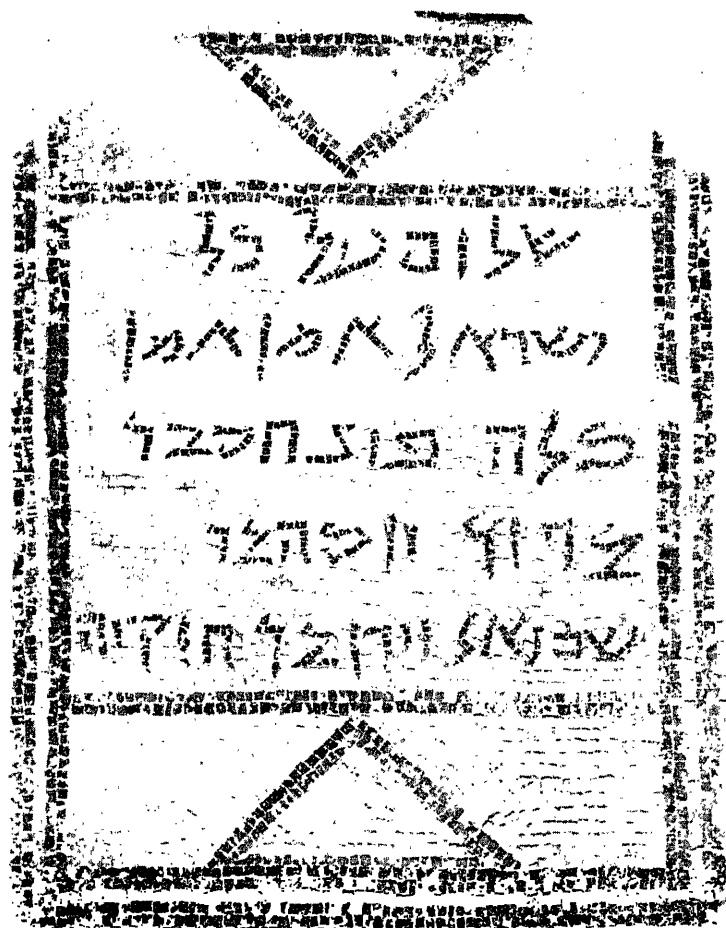 שלום על כל
ישראל אמן אמן
סלה פינחס בר
ברוך יוסה בר
שמואל ויודן בר חזקיה